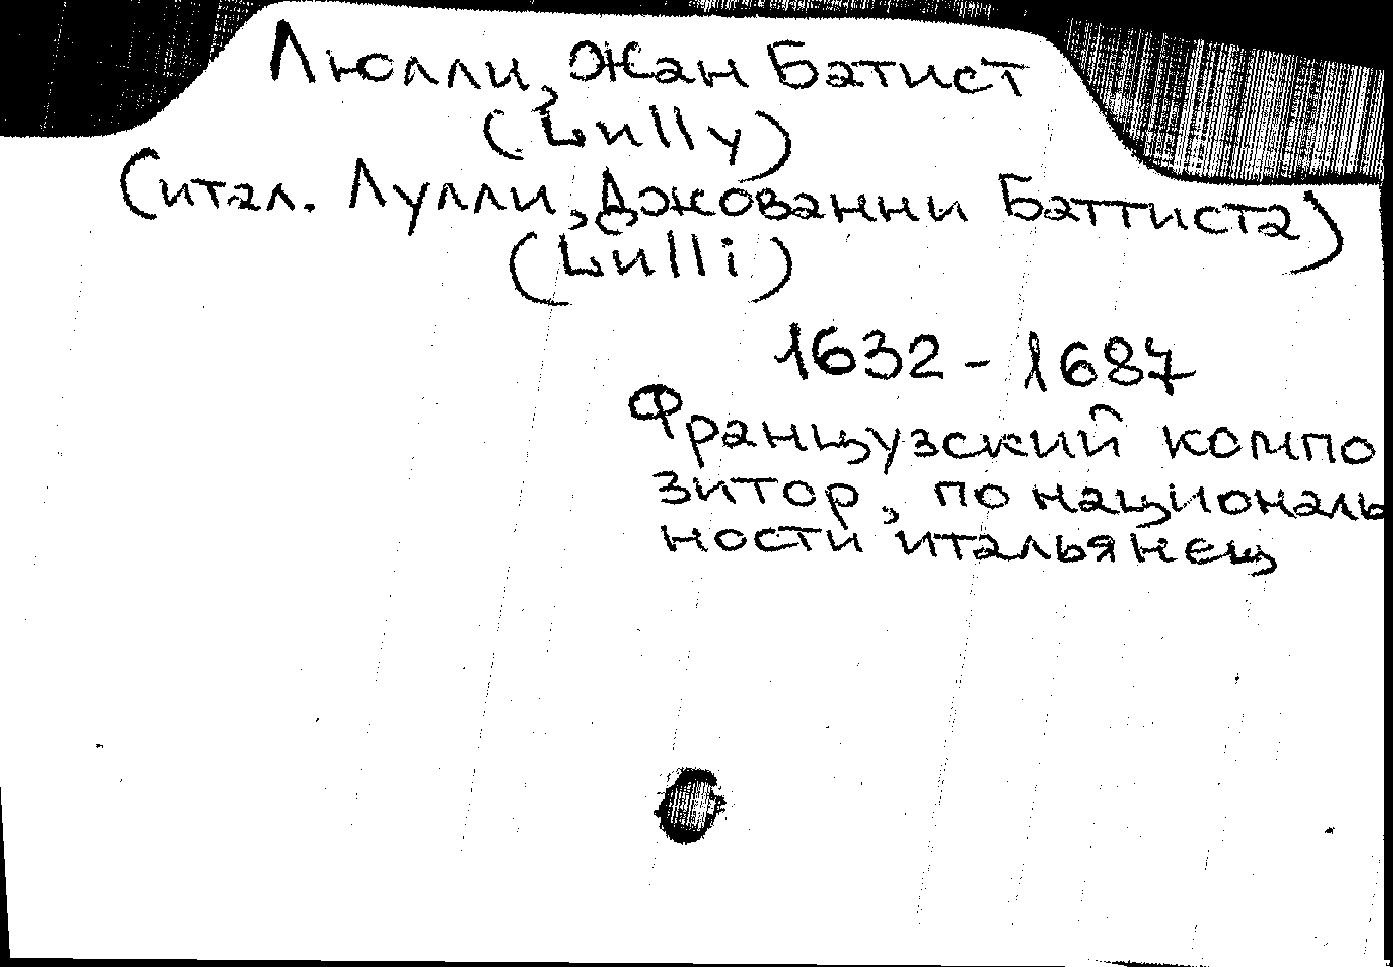 Люлли, Жан Батист
(Lully)
(итал. Лулли, Джованни Баттиста)
(Lulli)
1632 - 1687
Французский компо
зитор, по националь
ности итальянец